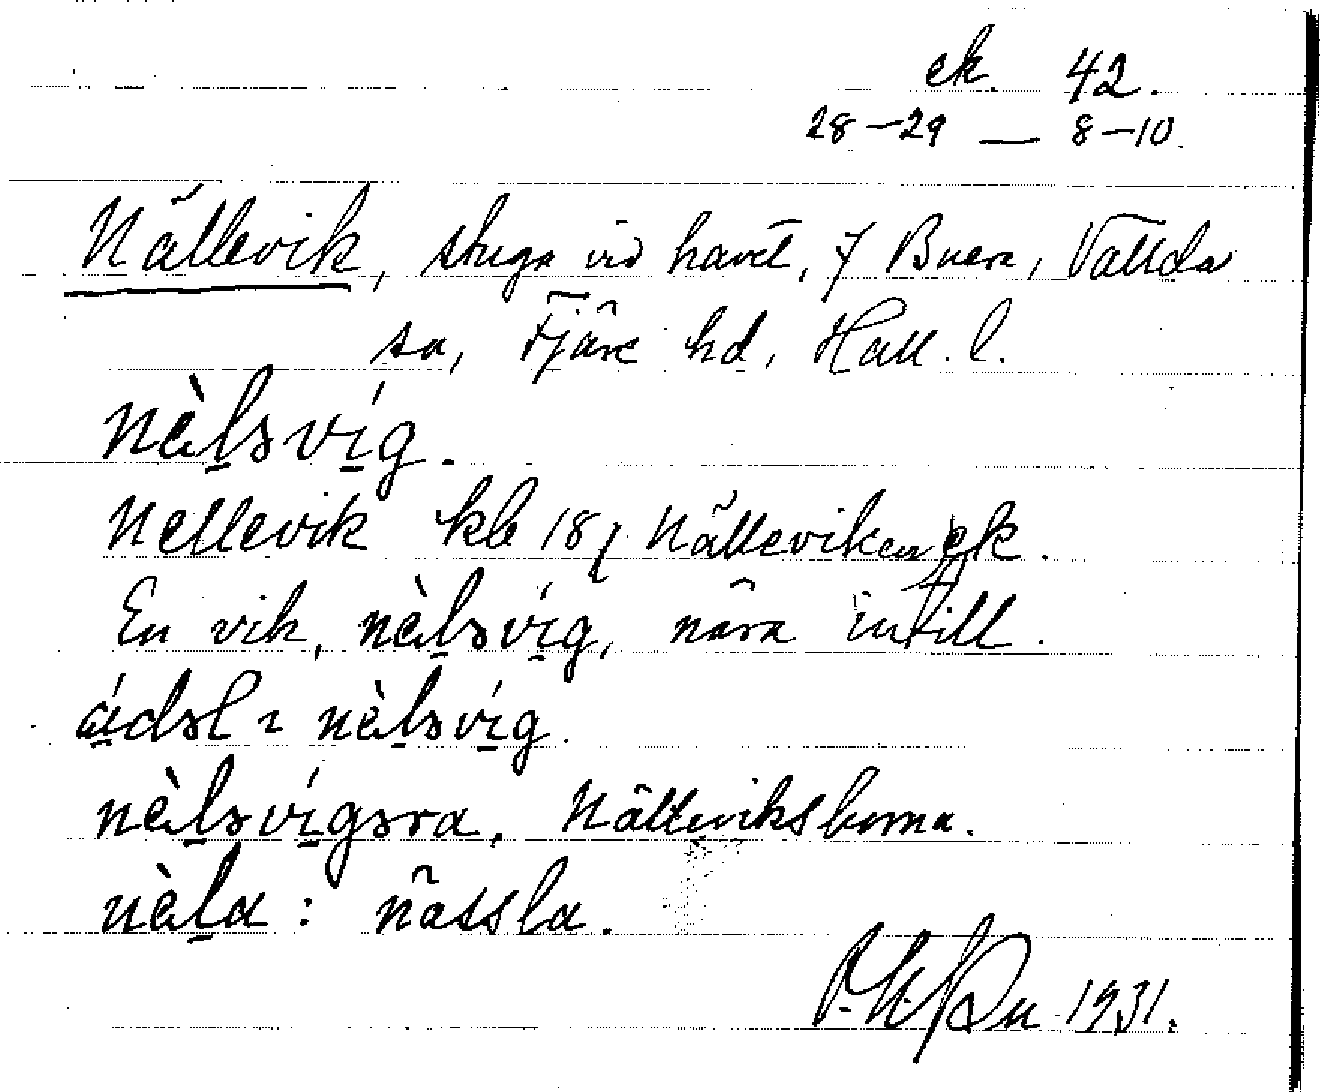 ek. 42.
28-29 — 8-10.
Nällevik, stuga vid havet, f Buera, Vallda
sn, Fjäre hd, Hall. l.
nèl̠sví̠g.
Nellevik kb 18, Nälleviken ek.
En vik, nèl̠sví̠g, nära intill.
nèl̠sví̠g.
nèl̠sví̠gsra, Nälleviksborna.
nèl̠a : nässla.
1931.